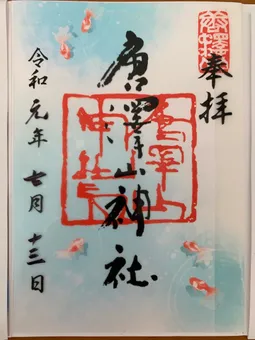 奉拝
唐澤山神社
令和元年 七月 十三日